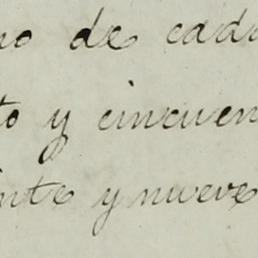 no de cada
to y cincuen
inte y nueve